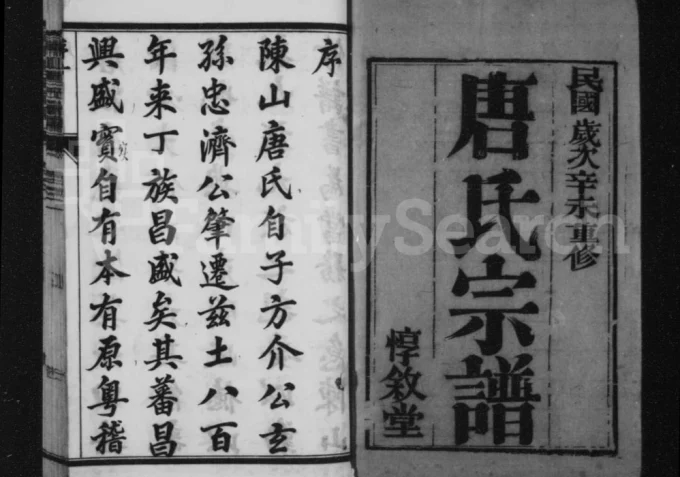 民國歲次辛未重修
唐氏宗譜
惇敘堂
序
陳山唐氏自子方介公玄
孫忠濟公肇遷茲土八百
年来丁族昌盛矣其蕃昌
興盛實自有本有原粤稽
FamilySearch